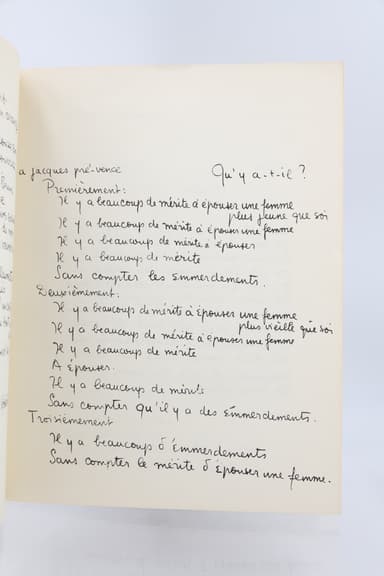 Qu'y a-t-il ?
a jacques pré-vence
Premièrement:
Il y a beaucoup de mérite à épouser une femme
plus jeune que soi
Il y a beaucoup de mérite à épouser une femme
Il y a beaucoup de mérite a épouser
Il y a beaucoup de mérite
Sans compter les Emmerdements.
Deuxièmement:
Il y a beaucoup de mérite à épouser une femme
plus vieille que soi
Il y a beaucoup de mérite a épouser une femme
Il y a beaucoup de mérite
A épouser.
Il y a beaucoup de mérite
Sans compter qu'il y a des Emmerdements.
Troisièmement
Il y a beaucoup d'émmerdements
Sans compter le mérite d'épouser une femme.